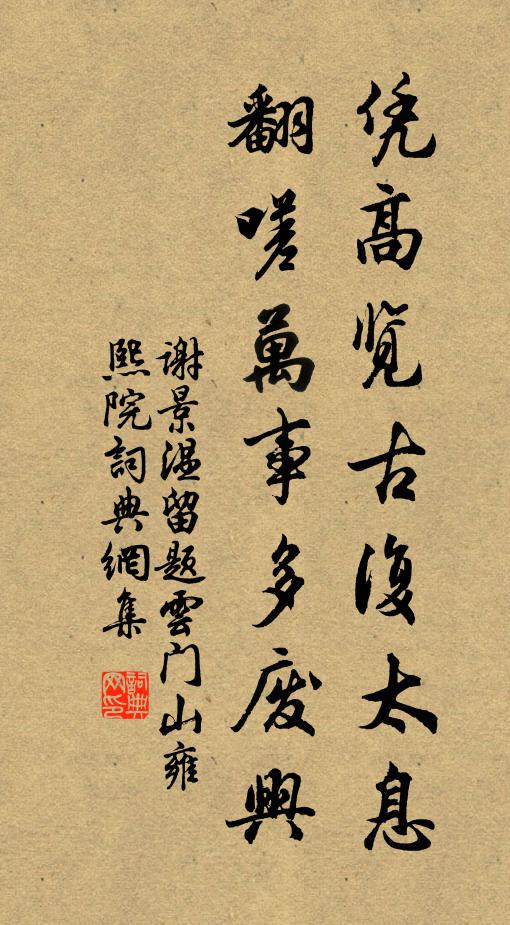 凭高览古復太息
翻嗟萬事多廢興
谢景温留题雲门山雍
熙院詞典網集
詞典
网印